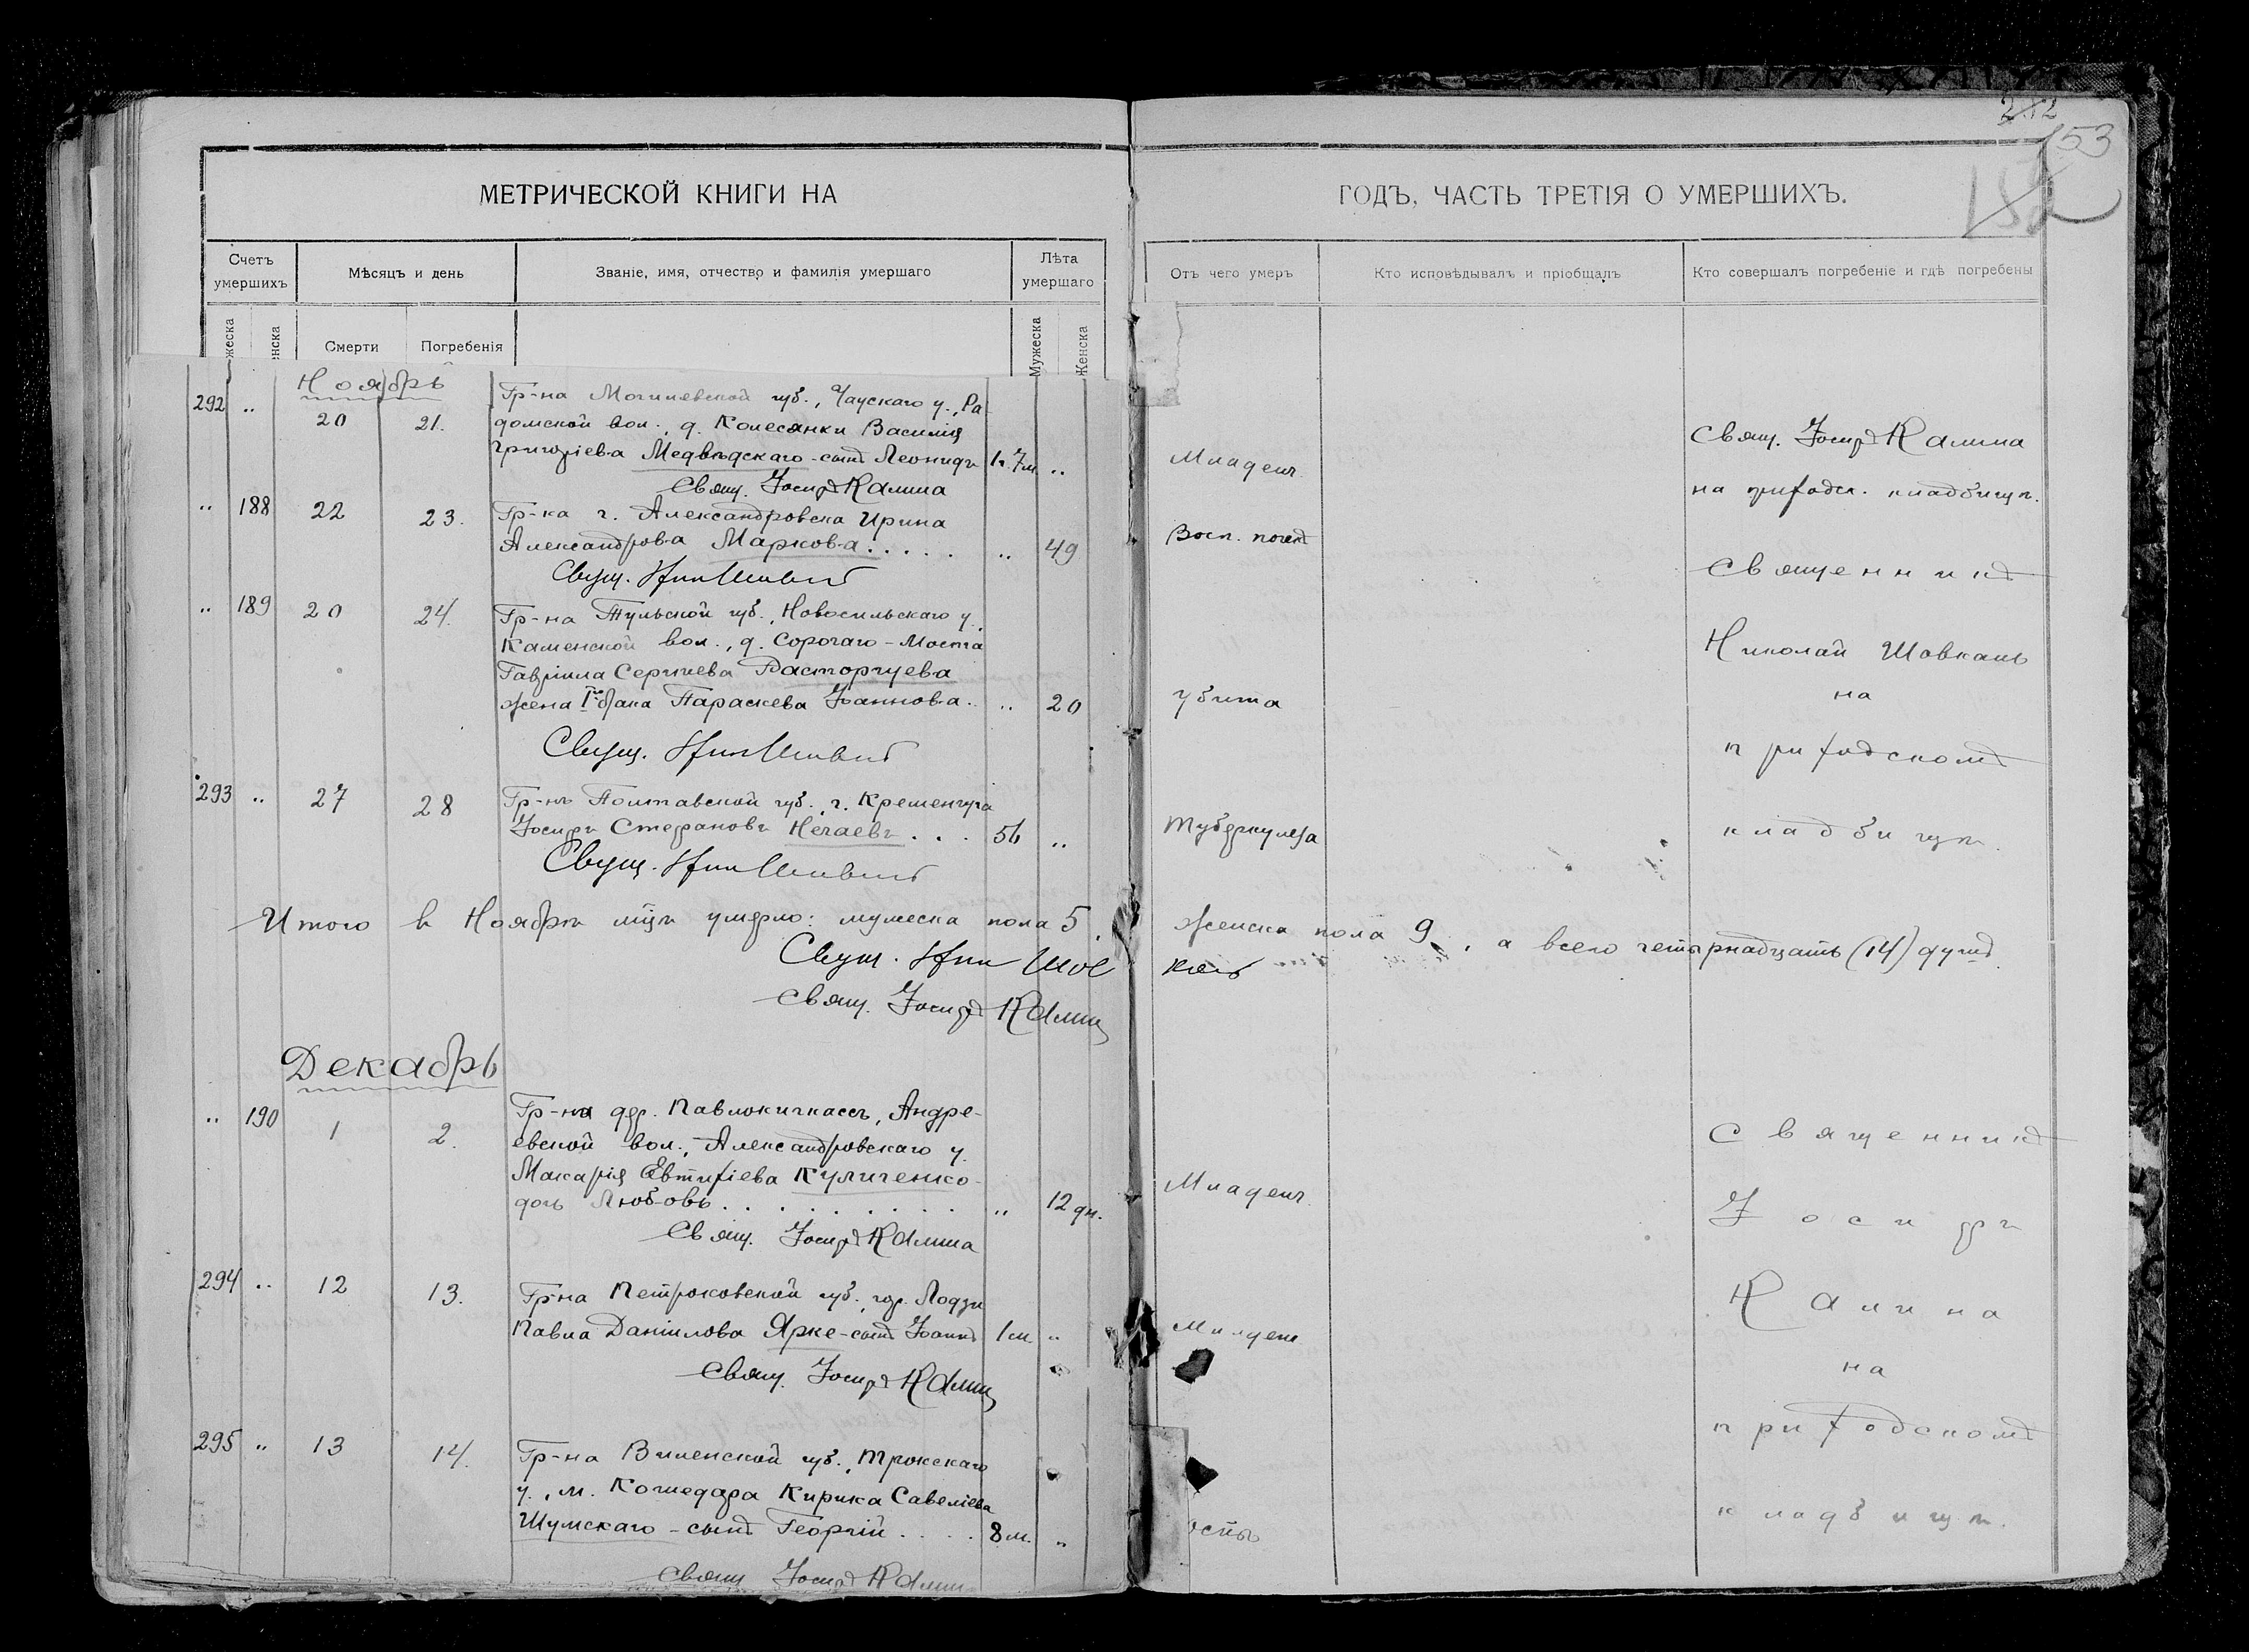 212
153
182
МЕТРИЧЕСКОЙ КНИГИ НА
ГОДЪ, ЧАСТЬ ТРЕТІЯ О УМЕРШИХЪ.
Счетъ умершихъ
Мѣсяцъ и день
Званіе, имя, отчество и фамилія умершаго
Лѣта умершаго
Отъ чего умеръ
Кто исповѣдывалъ и пріобщалъ
Кто совершалъ погребеніе и гдѣ погребены
жеска
нска
Смерти
Погребенія
Мужеска
Женска
Ноябрь
292 „ 20 21.
Гр-на Могилевской губ., Чаускаго у., Ра-
домской вол., д. Колесянки Василія
Григоріева Медвѣдскаго - сынъ Леонидъ 1г. 7м. „
Младенч.
Свящ. Іосифъ Калина
Свящ. Іосифъ Калина
на приходск. кладбищѣ.
„ 188 22 23.
Гр-ка г. Александровска Ирина
Александрова Маркова..... „ 49
Восп. почекъ
Свящ.
„ 189 20 24.
Гр-на Тульской губ., Новосильскаго у.,
Каменской вол., д. Сорочаго-Моста
Гавріила Сергіева Расторгуева
жена I брака Параскева Іоаннова.. „ 20
убита
Свящ.
293 „ 27 28
Гр-нъ Полтавской губ., г. Кременчуга
Іосифъ Стефановъ Нечаевъ... 56 „
Туберкулеза
Свящ.
Священникъ
Николай Шовкань
на
приходскомъ
кладбищѣ.
Итого в Ноябрѣ мцѣ умерло: мужеска пола 5, женска пола 9, а всего четырнадцать (14) душъ.
Свящ.
Свящ. Іосифъ Калина
Декабрь
„ 190 1 2.
Гр-на дер. Павлокичкассъ, Андре-
евской вол., Александровскаго у.
Макарія Евтихіева Куличенко-
дочь Любовь......... „ 12 дн.
Младенч.
Свящ. Іосифъ Калина
294 „ 12 13.
Гр-на Петроковской губ., гор. Лодзи
Павла Даніилова Ярке - сынъ Іоаннъ 1м. „
Младенч
Свящ. Іосифъ Калина
295 „ 13 14.
Гр-на Виленской губ., Трокскаго
у., м. Кошедара Кирика Савеліева
Шумскаго - сынъ Георгій.... 8м. „
оспы
Свящ Іосифъ Калина
Священникъ
Іосифъ
Калина
на
приходскомъ
кладбищѣ.